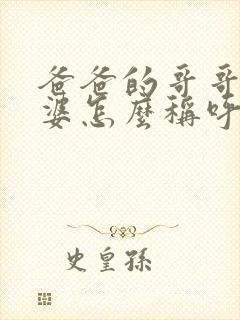 爸爸的哥哥
婆怎麼稱呼
史皇孫